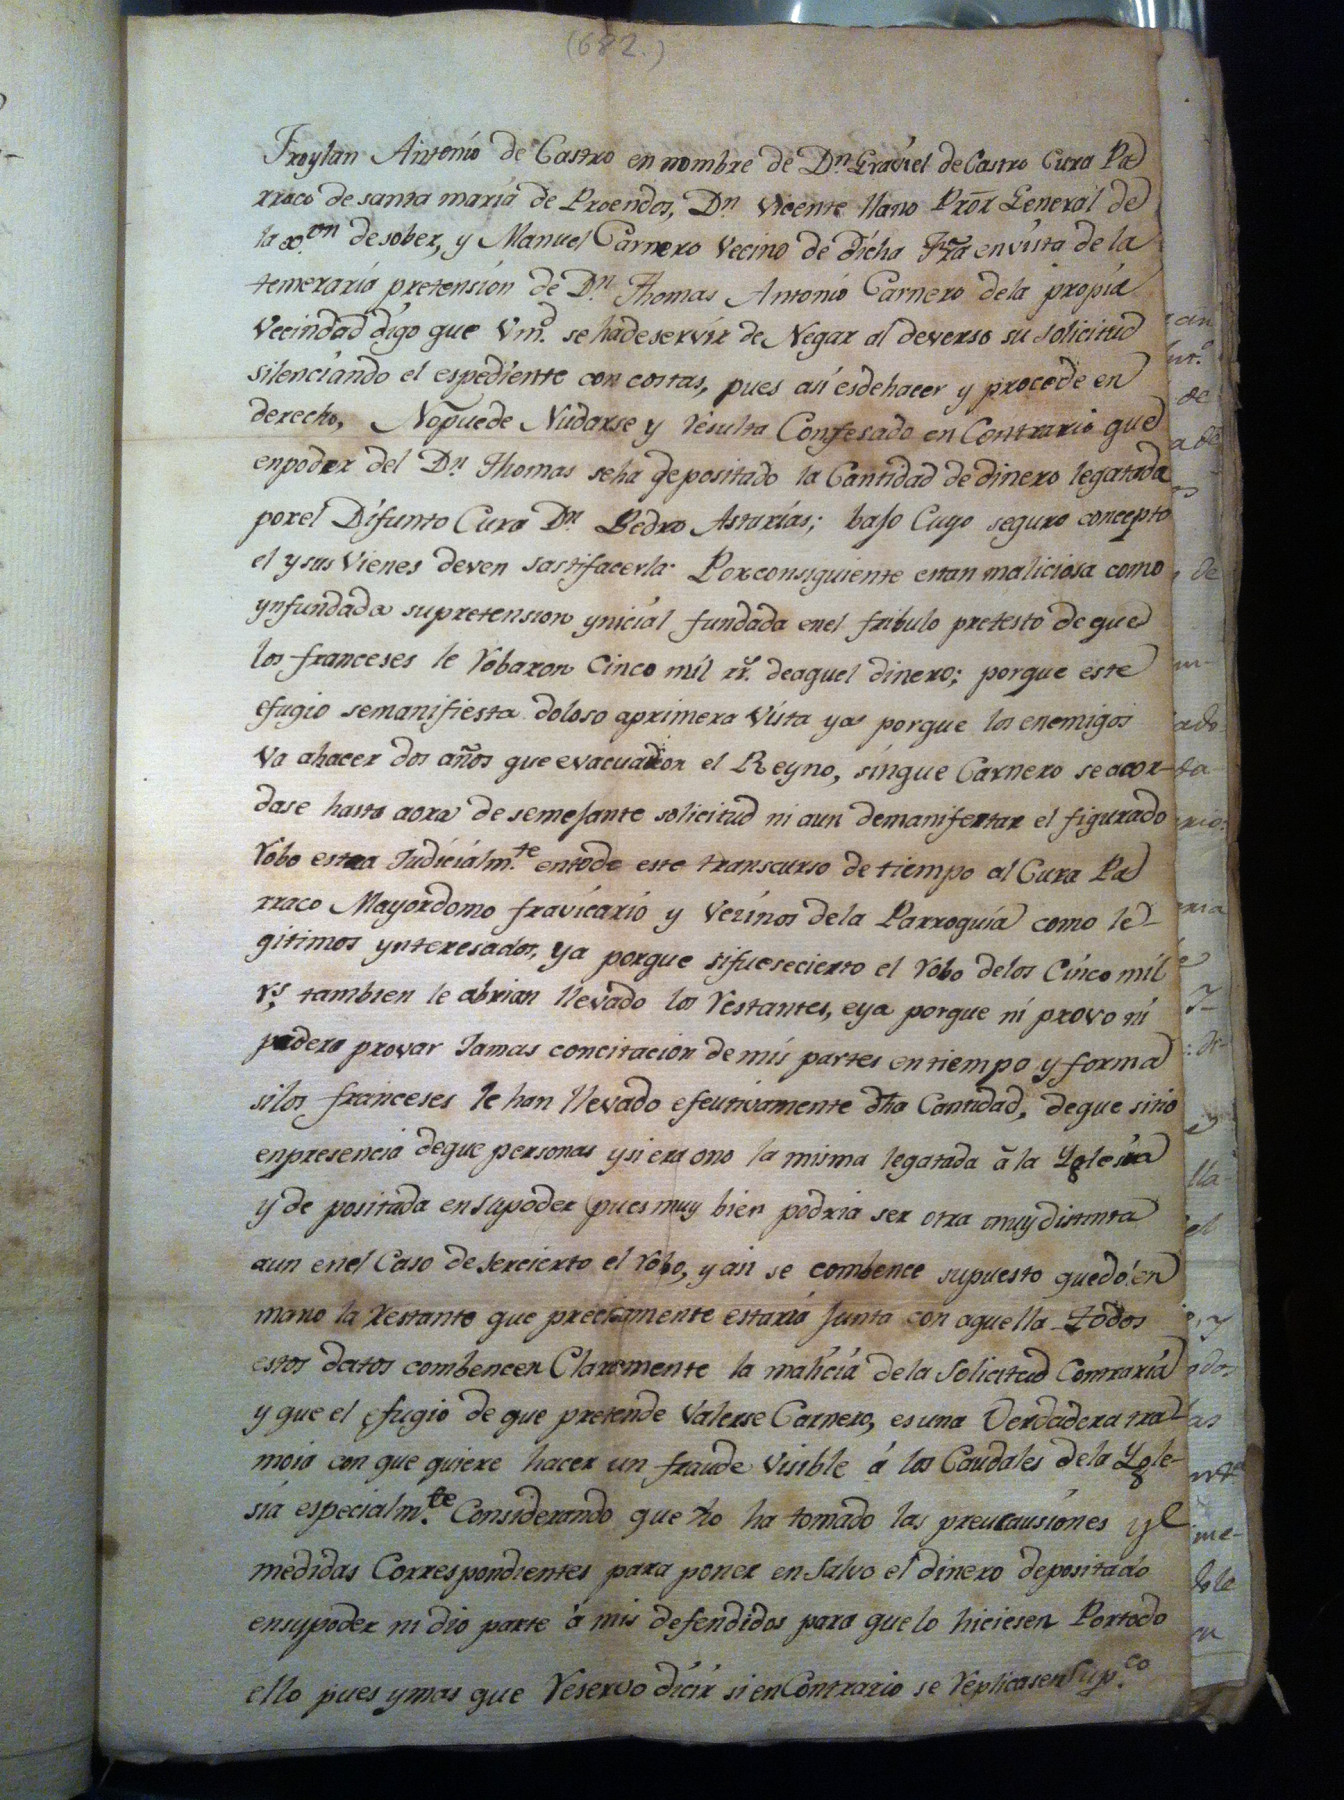 (682.)
Froylan Antonio de Castro en nombre de Dn. Graviel de Castro Cura Pa
rroco de santa maria de Proendos, Dn. Vicente llano Prõr General de
la xon. de sober, y Manuel Carnero Vecino de dicha Fra en vista de la
temeraria pretension de Dn. Thomas Antonio Carnero dela propia
Vecindad digo que Vmd. se hade servir de Negar al deverso su solicitud
silenciando el espediente con costas, pues asi esdehacer y procede en
derecho, Nopuede Nudarse y resulta Confesado en Contrario que
enpoder del Dn. Thomas seha depositado la Cantidad de dinero legatada
porel Difunto Cura Dn. Pedro Astarias; bajo Cuyo seguro concepto
el y sus Vienes deven sastifacerla. Porconsiguiente estan maliciosa como
ynfundada supretension ynicial fundada enel fribulo pretesto de que
los franceses le robaron Cinco mil rr. deaquel dinero; porque este
efugio semanifiesta doloso aprimera Vista ya porque los enemigos
Va ahacer dos años que evacuaron el Reyno, sinque Carnero se acor-
dase hasta aora de semejante solicitud ni aun demanifestar el figurado
robo estra Judicialmte. entode este transcurso de tiempo al Cura Pa
rraco Mayordomo fravicario y Vezinos dela Parroquia como le-
gitimos ynteresados, ya porque sifuesecierto el robo delos Cinco mil
rs. tambien le abrian llevado los restantes, eya porque ni provo ni
podera provar Jamas concitacion de mis partes en tiempo y forma
silos franceses le han llevado efeutivamente dha Cantidad, deque sitio
enpresencia deque personas ysi era ono la misma legatada â la Yglesia
y de positada ensupoder (pues muy bien podria ser otra muy distinta
aun enel Caso de sercierto el robo, y asi se combence supuesto quedó en
mano la restante que precisamente estaria Junta con aquella Todos
estos datos combencen Claramente la malicia dela Solicitud Contraria
y que el efugio de que pretende Valerse Carnero, es una Verdadera tra-
moia con que quiere hacer un fraude Visible á los Caudales dela Ygle-
sia especialmte. Considerando que no ha tomado las preucausiones y
medidas Correspondientes para poner en Salvo el dinero depositado
ensupoder ni dio parte á mis defendidos para que lo hiciesen Portodo
ello pues ymas que reservo dicir si en Contrario se replicasen Supco.